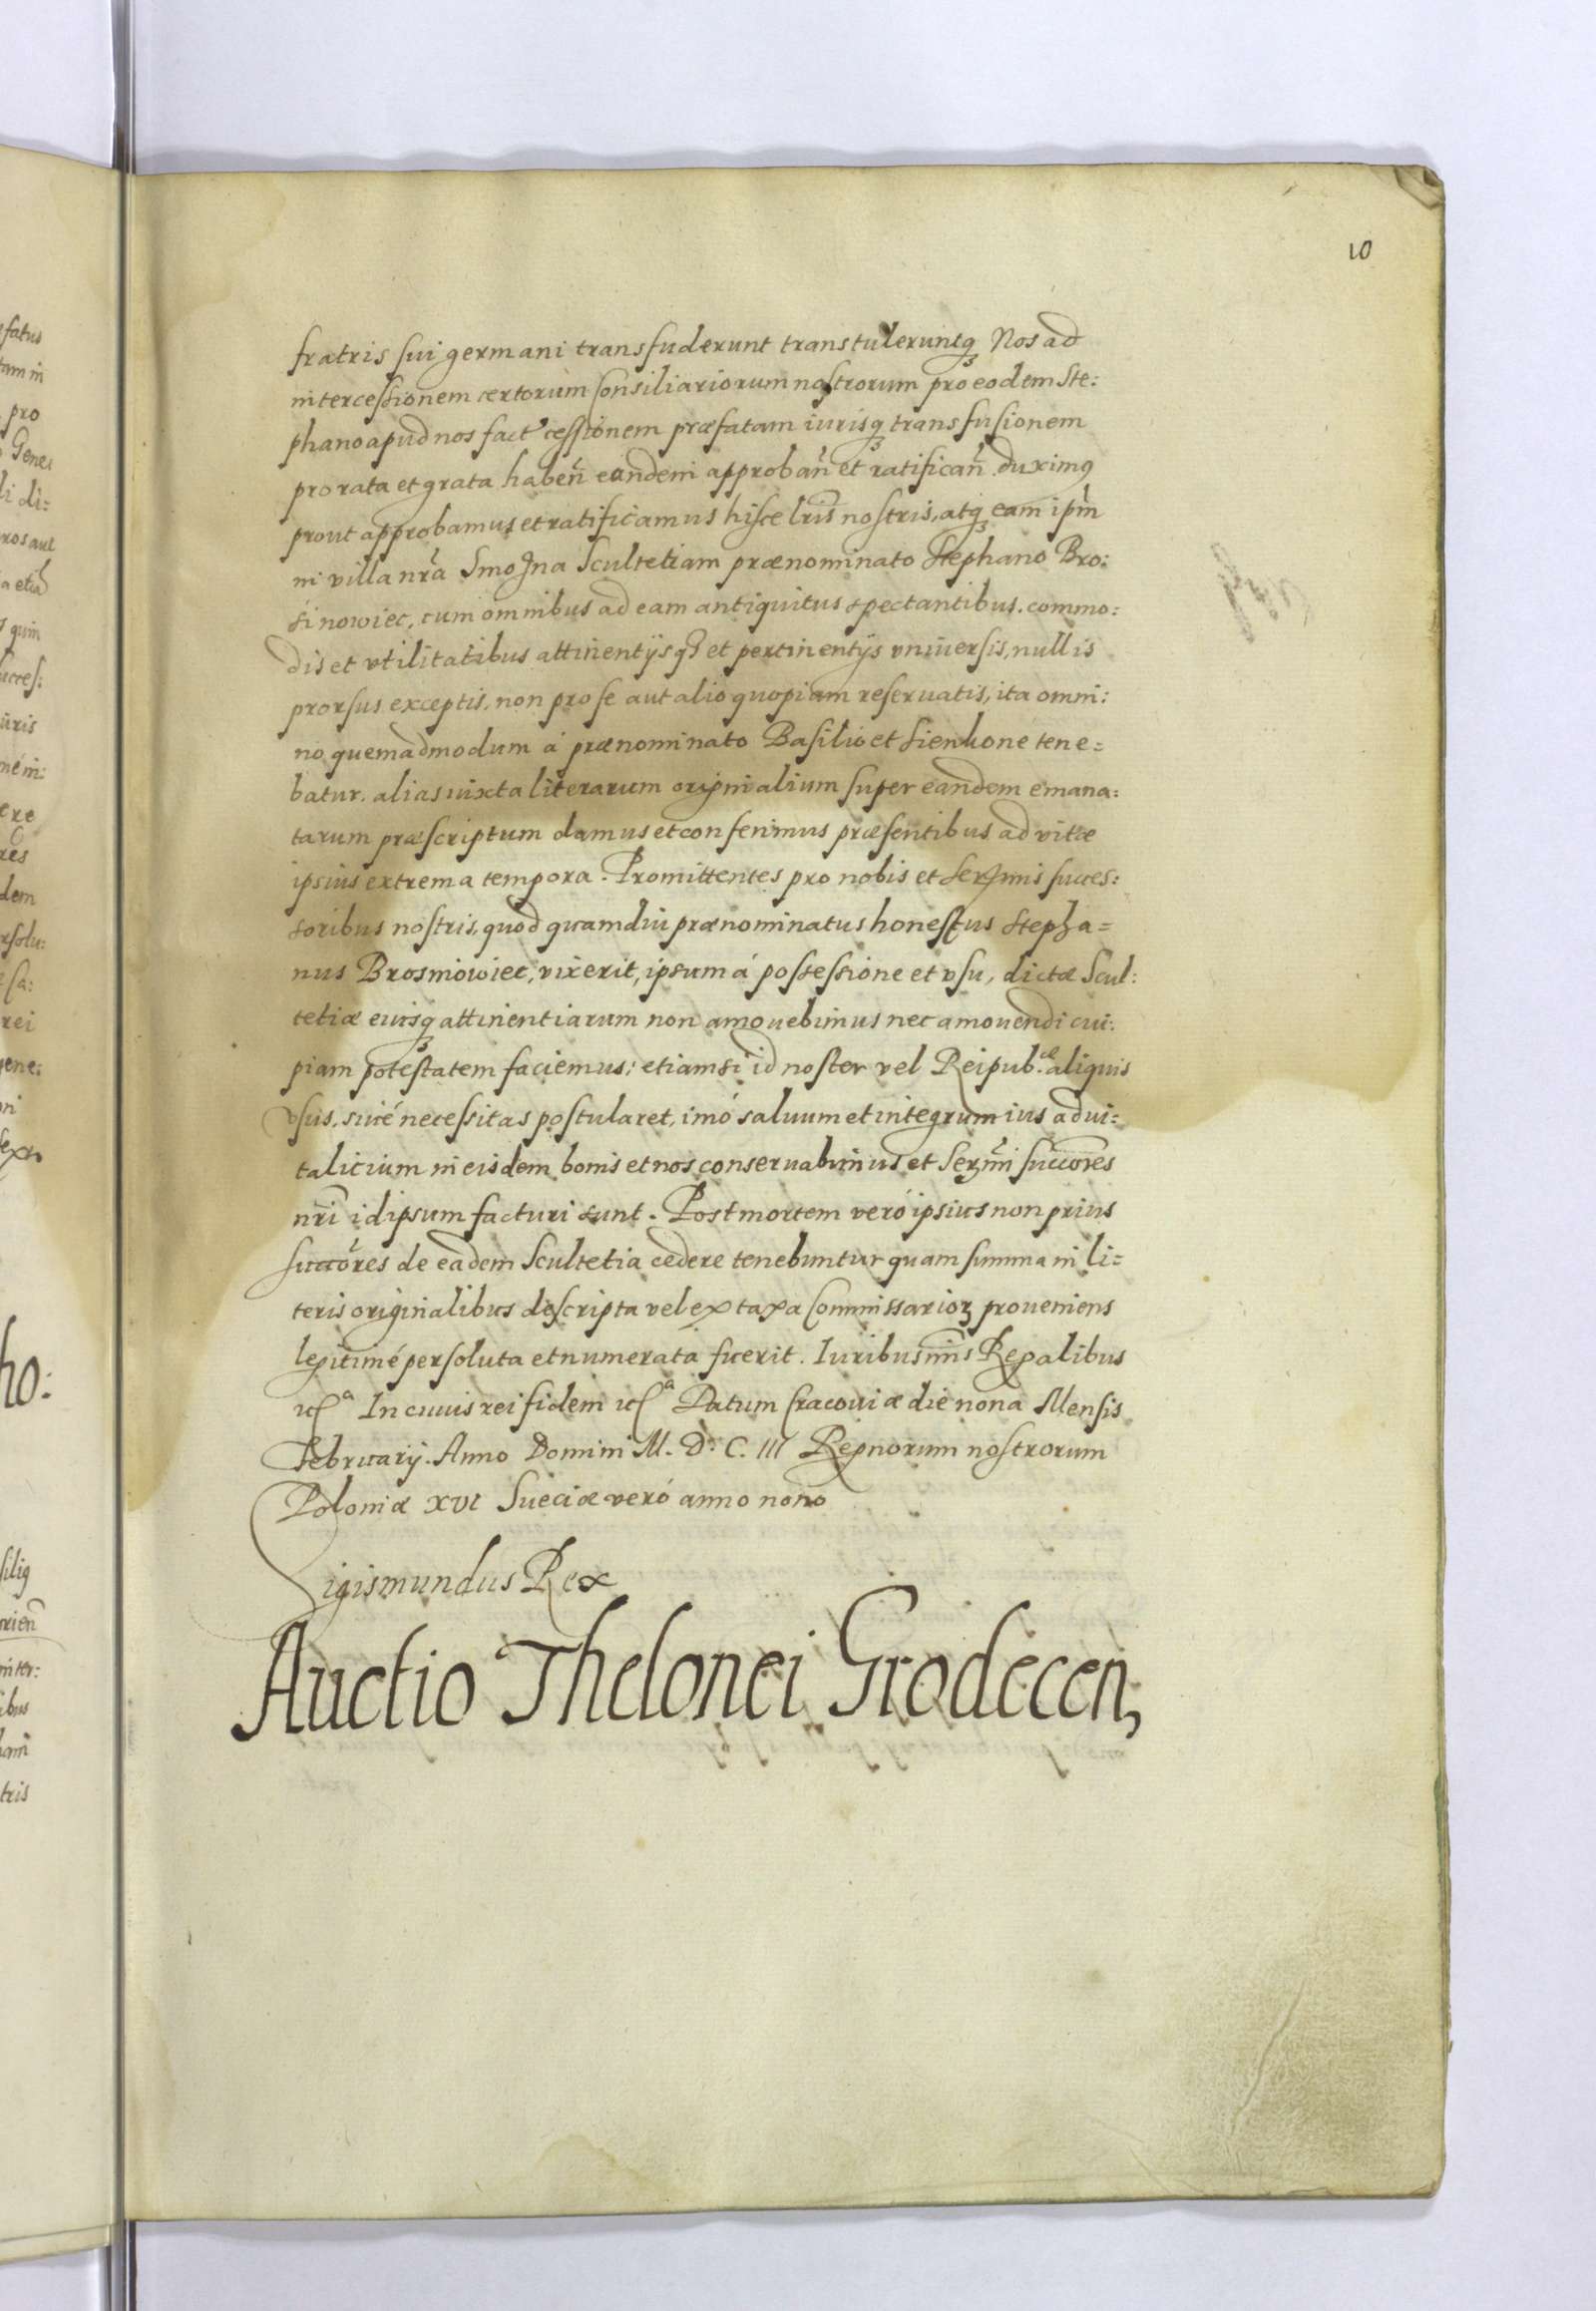 10
fratris sui germani transfuderunt transtuleruntq₃ Nos ad
intercessionem certorum Consiliariorum nostrorum pro eodem Ste:
phano apud nos fact' cessionem præfatam iurisq₃ transfusionem
pro rata et grata haben̄ eandem approban̄ et ratifican̄ duximus
prout approbamus et ratificamus hisce lrīs nostris, atq₃ eam ipm̄
in villa nrā Scultetiam prænominato Stephano Bro:
sinowiec, cum omnibus ad eam antiquitus spectantibus. commo:
dis et vtilitatibus attinentijsq₃ et pertinentijs vniuersis, nullis
prorsus exceptis, non pro se aut alio quopiam reseruatis, ita omni:
no quemadmodum á prænominato Basilio et Sienkone tene=
batur. alias iuxta literarum originalium super eandem emana:
tarum præscriptum damus et conferimus præsentibus ad vitæ
ipsius extrema tempora. Promittentes pro nobis et Serᵐⁱˢ succes:
soribus nostris, quod quamdiu prænominatus honestus Stepha=
nus Brosniowiec, vixerit, ipsum á possessione et vsu, dictæ Scul:
tetiæ eiusq₃ attinentiarum non amouebimus nec amouendi cui:
piam potestatem faciemus: etiamsi id noster vel Reipub.ᶜᵉ aliquis
vsus, siué necessitas postularet, imó saluum et integrum ius aduì=
talicium in eisdem bonis et nos conseruabimus et Serm̄i succōres
nrī idipsum facturi sunt. Post mortem veró ipsius non prius
succōres de eadem Scultetia cedere tenebuntur quam summa in li=
teris originalibus descripta vel ex taxa Commissarioꝝ proueniens
legitimé persoluta et numerata fuerit. Iuribus nrīs Regalibus
ic͡ᵃ In cuius rei fidem ic͡ᵃ Datum Cracouiæ die nona Mensis
Februarij. Anno Domini M. D. C. III Regnorum nostrorum
Poloniæ XVI Sueciæ veró anno nono
Sigismundus Rex
Auctio Thelonei Grodecen,